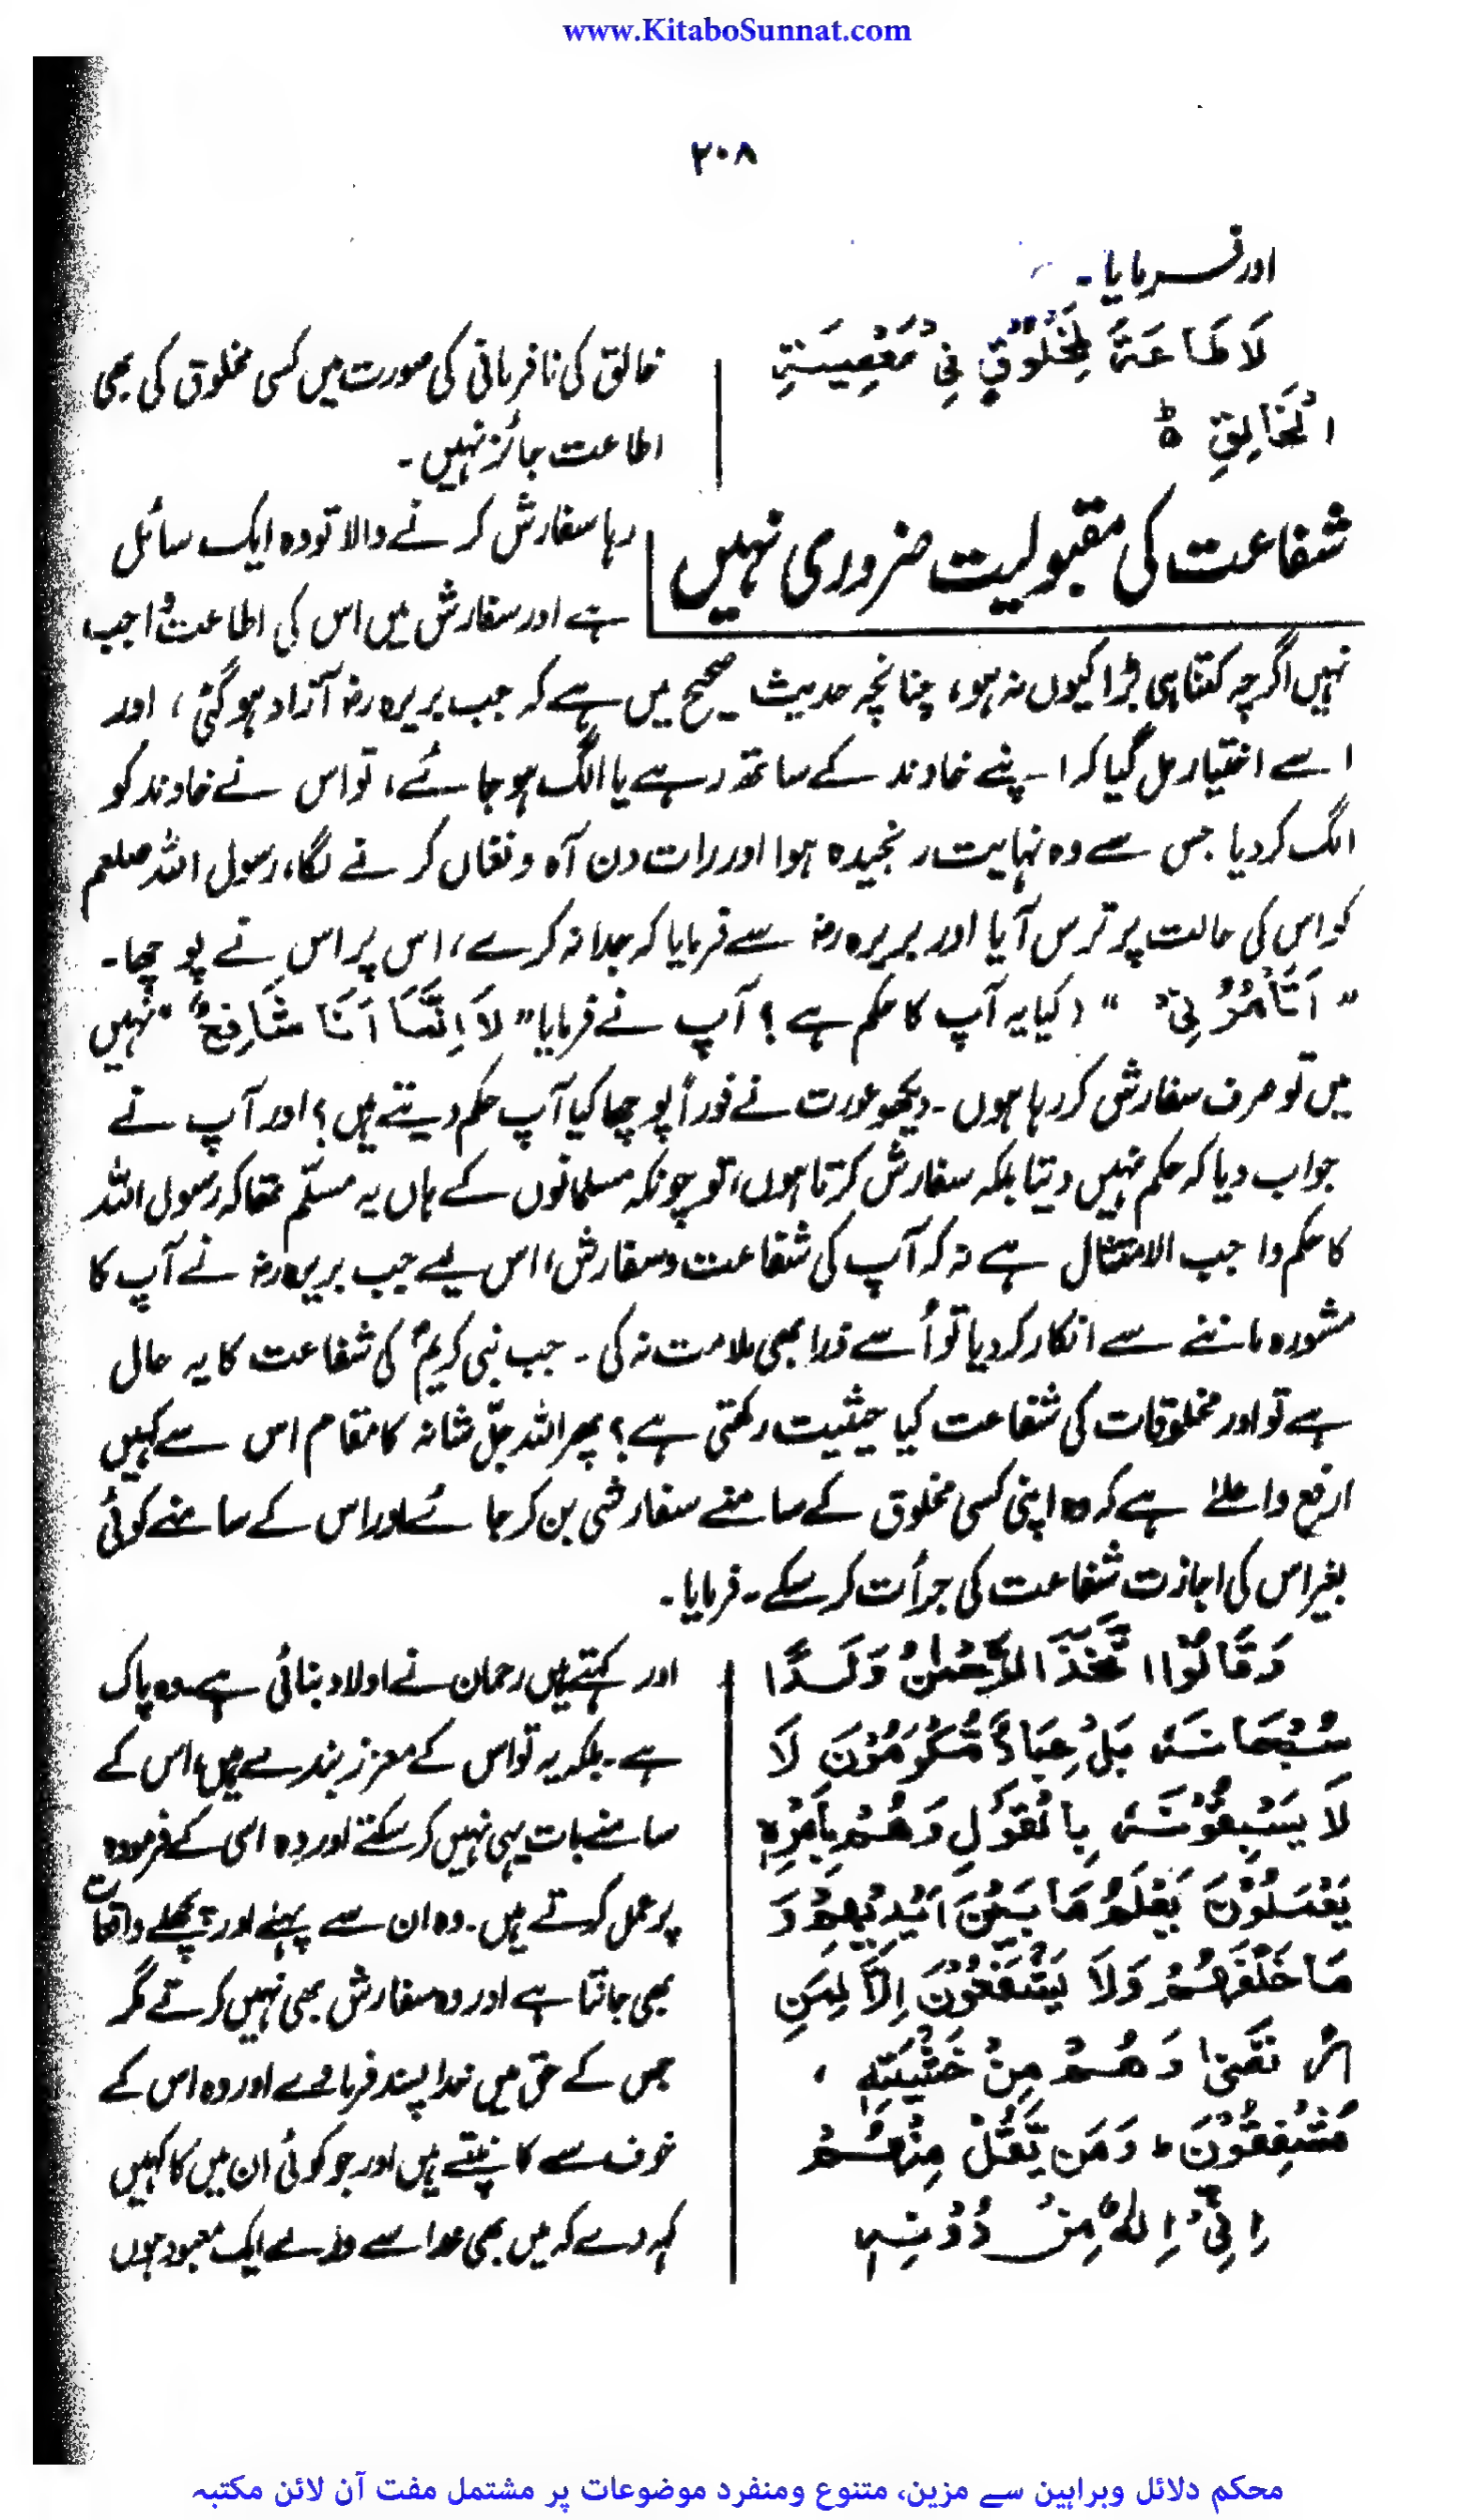 www.KitaboSunnat.com
۲۰۸
اور فرمایا۔
لَا طَاعَةَ لِمَخْلُوْقٍ فِیْ مَعْصِیَةِ
الْخَالِقِ ہ ط
خالق کی نافرمانی کی صورت میں کسی مخلوق کی بھی
اطاعت جائز نہیں۔
شفاعت کی مقبولیت ضروری نہیں
رہا سفارش کرنے والا تو وہ ایک سائل
ہے اور سفارش میں اس کی اطاعت واجب
نہیں اگرچہ کتنا ہی بڑا کیوں نہ ہو، چنانچہ حدیث صحیح میں ہے کہ جب بریرہ رضہ آزاد ہوگئی، اور
اسے اختیار مل گیا کہ اپنے خاوند کے ساتھ رہے یا الگ ہو جائے، تو اس نے خاوند کو
الگ کر دیا جس سے وہ نہایت رنجیدہ ہوا اور رات دن آہ و فغاں کرنے لگا، رسول اللہ صلعم
کو اس کی حالت پر ترس آیا اور بریرہ رضہ سے فرمایا کہ جدا نہ کرے، اس پر اس نے پوچھا۔
" اَتَأْمُرُنِیْ " (کیا یہ آپ کا حکم ہے؟ آپ نے فرمایا " لَا اِنَّمَا اَنَا شَافِعٌ " نہیں
میں تو صرف سفارش کر رہا ہوں۔ دیکھو عورت نے فوراً پوچھا کیا آپ حکم دیتے ہیں؟ اور آپ نے
جواب دیا کہ حکم نہیں دیتا بلکہ سفارش کرتا ہوں، تو چونکہ مسلمانوں کے ہاں یہ مسلّم تھا کہ رسول اللہ
کا حکم واجب الامتثال ہے نہ کہ آپ کی شفاعت وسفارش، اس لیے جب بریرہ رضہ نے آپ کا
مشورہ ماننے سے انکار کر دیا تو اُسے ذرا بھی ملامت نہ کی۔ جب نبی کریمؐ کی شفاعت کا یہ حال
ہے تو اور مخلوقات کی شفاعت کیا حیثیت رکھتی ہے؟ پھر اللہ جلّ شانہ کا مقام اس سے کہیں
ارفع واعلےٰ ہے کہ وہ اپنی کسی مخلوق کے سامنے سفارشی بن کر جائے اور اس کے سامنے کوئی
بغیر اس کی اجازت شفاعت کی جرأت کر سکے۔ فرمایا۔
وَقَالُوْا اتَّخَذَ الرَّحْمٰنُ وَلَدًا
سُبْحَانَهٗ بَلْ عِبَادٌ مُّكْرَمُوْنَ لَا
لَا یَسْبِقُوْنَهٗ بِالْقَوْلِ وَهُمْ بِاَمْرِهٖ
یَعْمَلُوْنَ یَعْلَمُ مَا بَیْنَ اَیْدِیْهِمْ وَ
مَا خَلْفَهُمْ وَلَا یَشْفَعُوْنَ اِلَّا لِمَنِ
ارْتَضٰی وَهُمْ مِنْ خَشْیَتِهٖ ،
مُشْفِقُوْنَ ؕ وَمَن یَّقُلْ مِنْهُمْ
اِنِّیْ اِلٰهٌ مِنْ دُوْنِهٖ
اور کہتے ہیں رحمان نے اولاد بنائی ہے۔ وہ پاک
ہے۔ بلکہ یہ تو اس کے معزز بندے ہیں، اس کے
سامنے بات ہی نہیں کر سکتے اور وہ اسی کے فرمودہ
پر عمل کرتے ہیں۔ وہ ان سے پہلے اور پچھلے واقعات
بھی جانتا ہے اور وہ سفارش بھی نہیں کرتے مگر
جس کے حق میں خدا پسند فرمالے اور وہ اس کے
خوف سے کانپتے ہیں اور جو کوئی ان میں کا کہیں
کہہ دے کہ میں بھی خدا سے ورے ایک معبود ہوں
محکم دلائل وبراہین سے مزین، متنوع ومنفرد موضوعات پر مشتمل مفت آن لائن مکتبہ